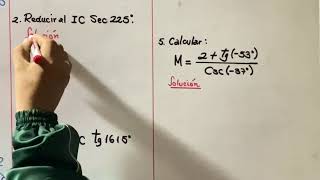 2. Reducir al IC Sec 225°.
Solución
C tg 1615°
5. Calcular:
M = 2 + Tg(-53°)
Csc(-37°)
Solución